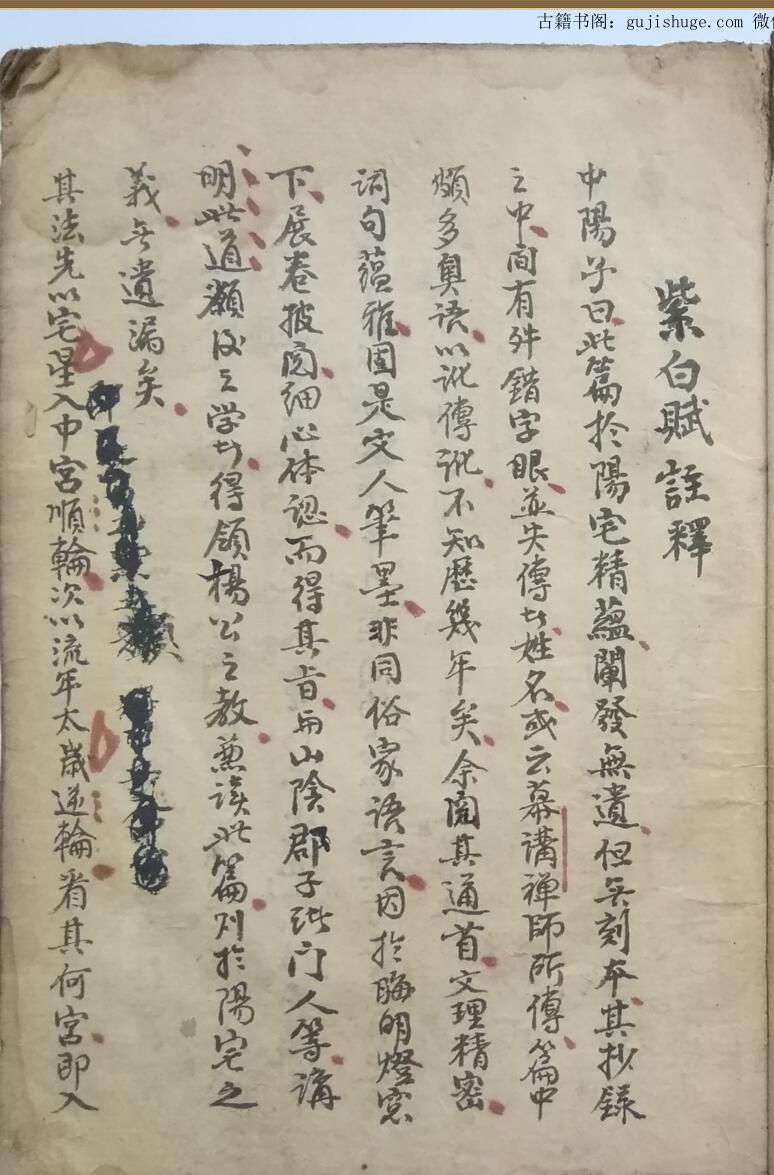 古籍书阁：gujishuge.com 微信
紫白賦註釋
中陽子曰此篇於陽宅精蘊闡發無遺但無刻本其抄錄
之中间有舛錯字眼並失傳者姓名或云幕講禅師所傳篇中
頗多奧語以訛傳訛不知歷幾年矣余閲其通首文理精密
詞句蕴雅固是文人筆墨非同俗家語言因於晦明燈窓
下展卷披阅细心体認而得其旨与山陰郡子門人等講
明此道願後之学者得領楊公之教兼读此篇则於陽宅之
義无遺漏矣
其法先以宅星入中宮順輪次以流年太歲逆輪看其何宮即入